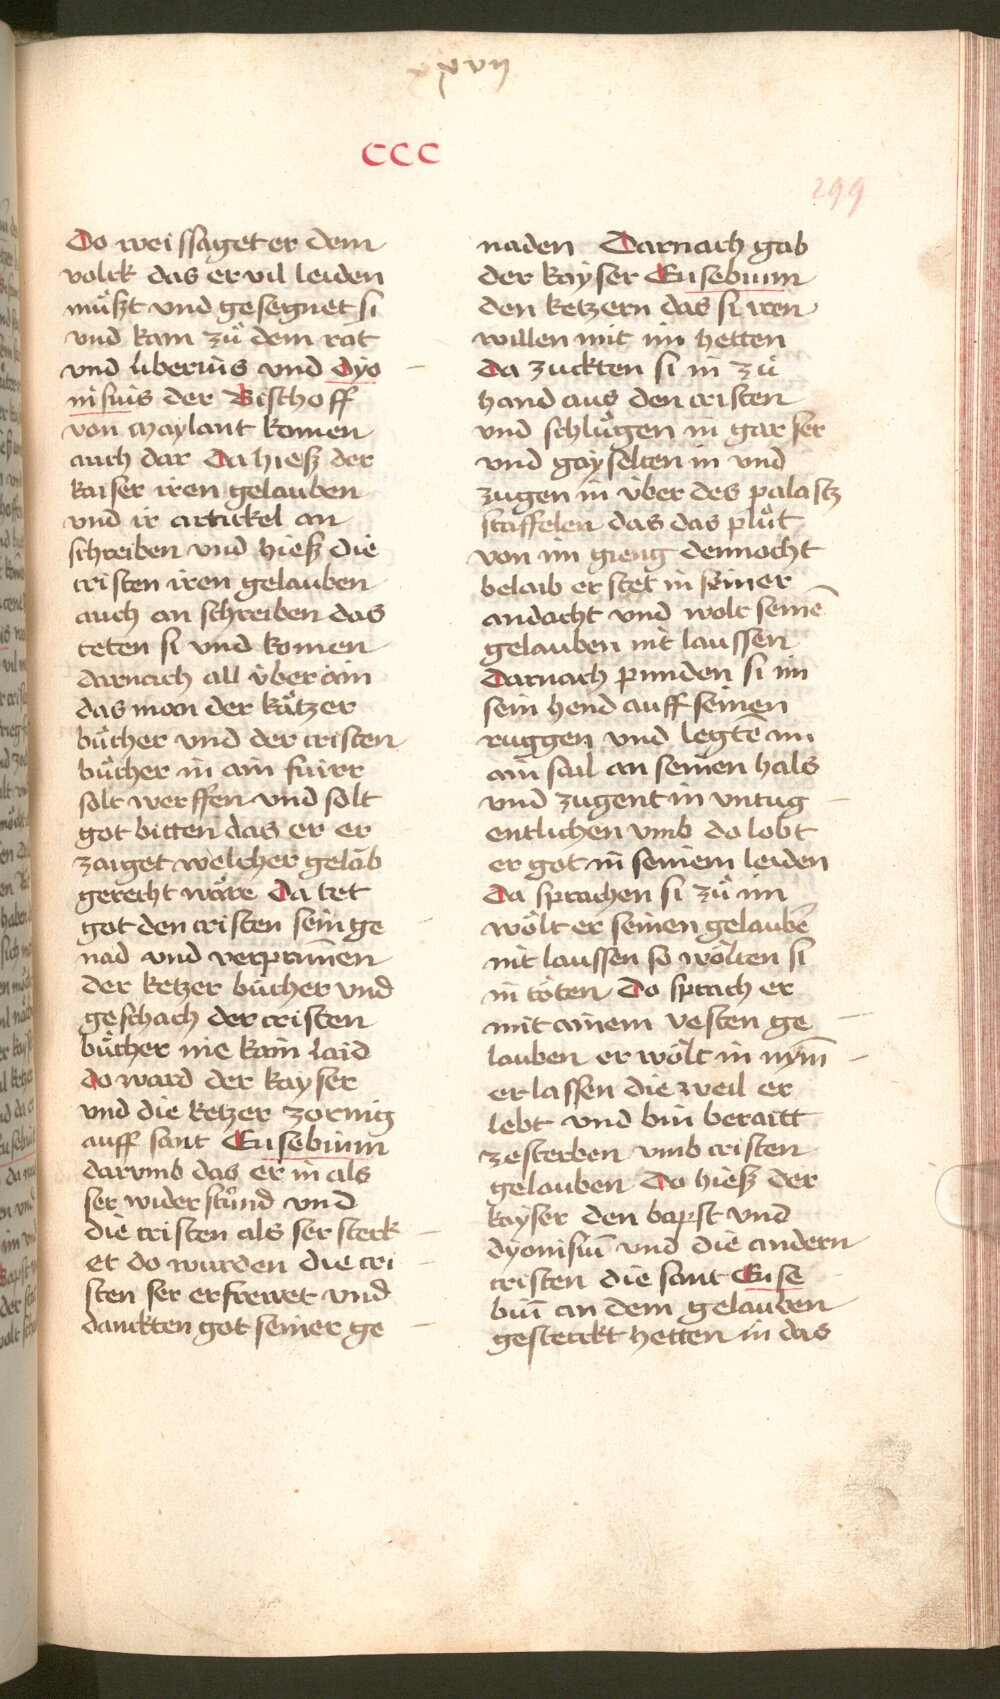 xxvii
CCC
299
Do weissaget er dem
volck das er vil leiden
muͤßt vnd gesegnet si
vnd kam zuͦ dem rǎt
vnd liberius vnd dyo
nisius der Bischoff
von maylant komen
auch dar Da hieß der
kaiser iren gelauben
vnd ir artickel an
schreiben vnd hieß die
cristen iren gelauben
auch an schreiben das
teten si vnd komen
darnach all v̈ber ain
das man der kaͤtzer
buͤcher vnd der cristen
buͤcher in ain fuirr
solt werffen vnd solt
got bitten das er er
zaiget welcher gelāb
gerecht waͤre Da tet
got den cristen sein ge
nad vnd verprūnen
der ketzer buͤcher vnd
geschach der cristen
buͤcher nie kain laid
do ward der kayser
vnd die ketzer zornig
auff sant Eusebium
darvmb das er in als
ser wider stuͦnd vnd
die cristen als ser sterk
et do wurden die cri
sten ser erfrewet vnd
danckten got seiner ge
naden Darnach gab
der kayser Eusebium
den ketzern das si iren
willen mit im hetten
Da zuckten si in zuͦ
hand aus den cristen
vnd schluͦgen in gar ser
vnd gayselten in vnd
zugen in v̈ber des palastz
staffelen das das pluͦt
von im gieng dennocht
belaib er stet in seiner
andacht vnd wolt seinē
gelauben nit laussen
Darnach punden si im
sein hend auff seinen
ruggen vnd legtē im
ain sail an seinen hals
vnd zugent in vntug
entlichen vmb do lobt
er got in seinem leiden
Da sprachen si zuͦ im
woͤlt er seinen gelaubē
nit laussen so woͤlten si
in toͤten Do sprach er
mit ainem vesten ge
lauben er woͤlt in nym̄
erlassen die weil er
lebt vnd bin beraitt
zesterben vmb cristen
gelauben Do hieß der
kayser den bapst vnd
dyonisiū vnd die andern
cristen die sant Euse
biū an dem gelauben
gesterckt hetten in das